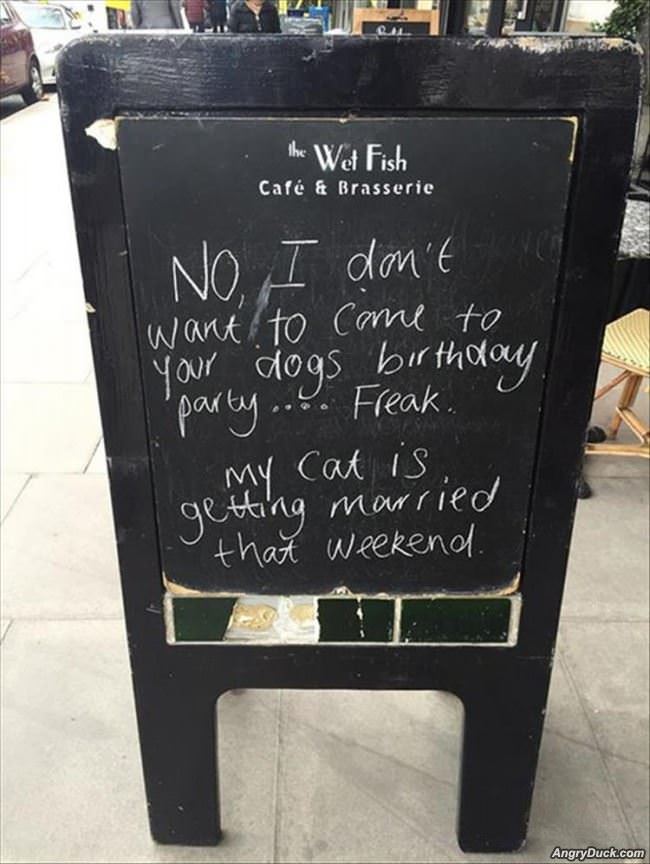 the Wet Fish
Café & Brasserie
NO, I don't
want to come to
your dogs birthday
party.... Freak.
My cat is
getting married
that weekend.
AngryDuck.com